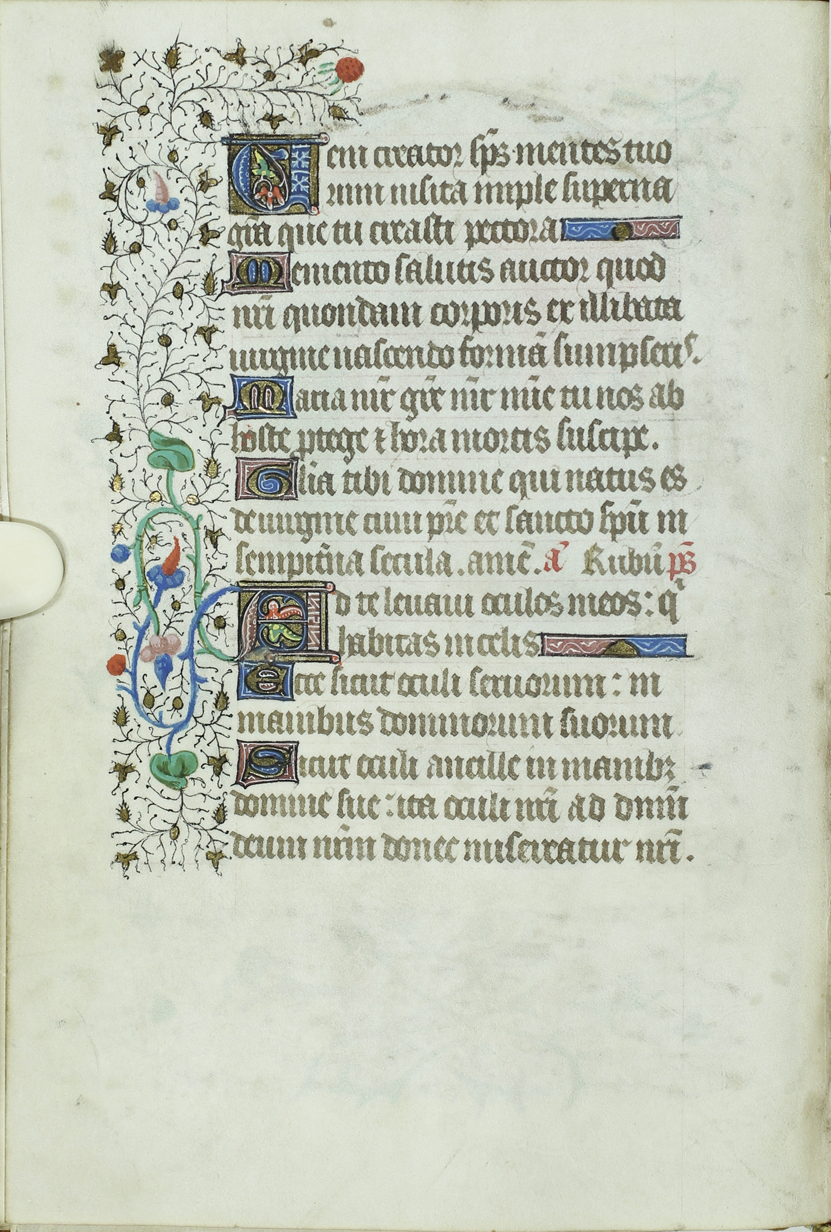 Veni creator sp̄s mentes tuo
rum uisita imple superna
gr̄a que tu creasti pectora
Memento salutis auctor quod
nr̄i quondam corporis ex illibata
uirgine nascendo formā sumpseris.
Maria mr̄ gr̄e mr̄ mīe tu nos ab
hoste ptege ⁊ hora mortis suscipe.
Glīa tibi domine qui natus es
de uirgine cum pr̄e et sancto spū in
sempit̄na secula. amē. a᷒ Rubū ps̄
Ad te leuaui oculos meos: qͥ
habitas in celis
Ecce sicut oculi seruorum: in
manibus dominorum suorum
Sicut oculi ancille in manibꝫ
domine sue: ita oculi nr̄i ad dn̄m
deum nr̄m donec misereatur nr̄i.